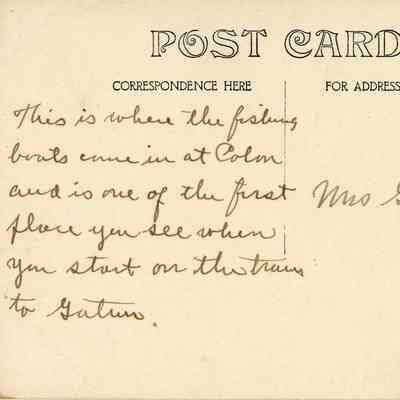 POST CARD
CORRESPONDENCE HERE
FOR ADDRESS
This is where the fishing
boats come in at Colon
and is one of the first
place you see when
you start on the train
to Gatun.
Mrs G